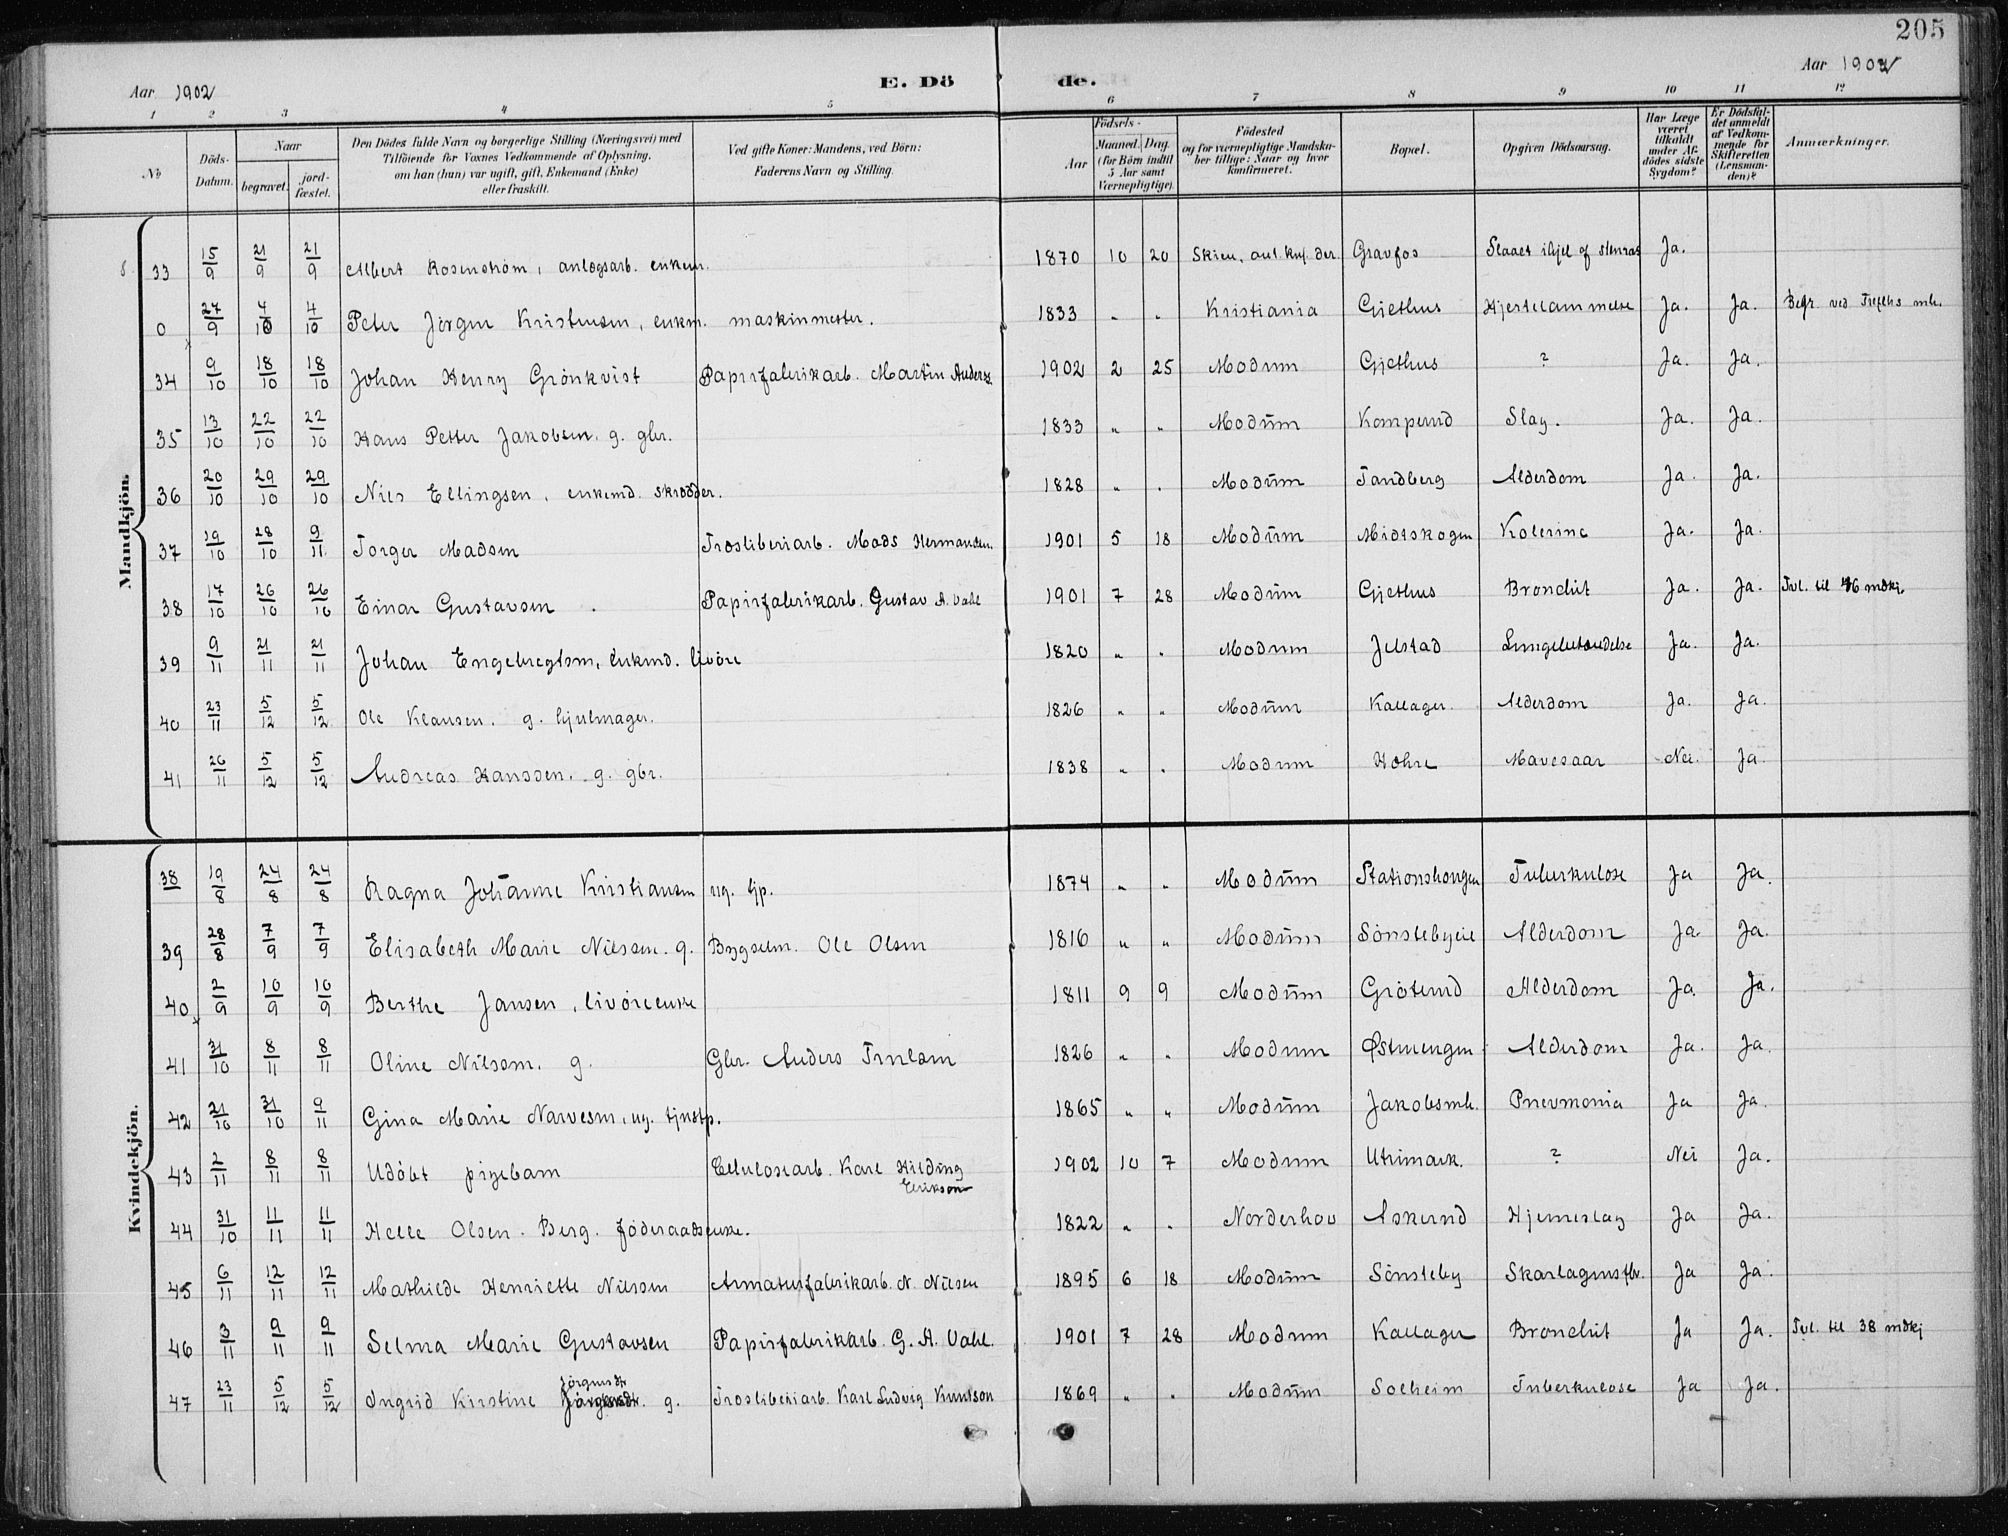 205
Aar 1902 E. Dö de. Aar 1902
1 2 3 4 5 6 7 8 9 10 11 12
№ Döds-Datum. Naar begravet. jord-fæstet. Den Dödes fulde Navn og borgerlige Stilling (Næringsvei) med Tilföiende for Voxnes Vedkommende af Oplysning, om han (hun) var ugift, gift, Enkemand (Enke) eller fraskilt. Ved gifte Koner: Mandens, ved Börn: Faderens Navn og Stilling. Födsels- Aar Maaned. Dag. (for Börn indtil 5 Aar samt Værnepligtige). Födested og for værnepligtige Mandskaber tillige: Naar og hvor konfirmeret. Bopæl. Opgiven Dödsaarsag. Har Læge været tilkaldt under Afdödes sidste Sygdom? Er Dödsfaldet anmeldt af Vedkommende for Skifteretten (Lensmanden)? Anmærkninger.
Mandkjön.
33 15/9 21/9 21/9 Albert Rosenstrøm, anlægsarb. enkem. 1870 10 20 Skien, ant. knf. der. Gravfos Slaaet ihjel af stenras Ja.
0 27/9 4/10 4/10 Peter Jörgen Kristensen, enkm. maskinmester. 1833 " " Kristiania Gjethus Hjertelammelse Ja. Ja. Begr. ved Trefchs mh.
34 9/10 18/10 18/10 Johan Henry Grönkvist Papirfabrikarb. Martin Anders. 1902 2 25 Modum Gjethus ? Ja. Ja.
35 13/10 22/10 22/10 Hans Petter Jakobsen. g. gbr. 1833 " " Modum Komperud Slag. Ja. Ja.
36 20/10 29/10 29/10 Nils Ellingsen, enkemd. skrædder. 1828 " " Modum Tandberg Alderdom Ja. Ja.
37 19/10 28/10 9/11 Torger Madsen Træsliberiarb. Mads Hermansen. 1901 5 18 Modum Midtskogen Kolerine Ja. Ja.
38 17/10 26/10 26/10 Einar Gustavsen. Papirfabrikarb. Gustav A. Vahl 1901 7 28 Modum Gjethus Bronchit Ja. Ja. Tvl. til 46 mdkj.
39 9/11 21/11 21/11 Johan Engebregtsen, enkemd. livöre 1820 " " Modum Jelstad Lungebetændelse Ja. Ja.
40 23/11 5/12 5/12 Ole Klausen. g. hjulmager. 1826 " " Modum Kallager. Alderdom Ja. Ja.
41 26/11 5/12 5/12 Andreas Hanssen. g. gbr. 1838 " " Modum Hohre Mavesaar Nei. Ja.
Kvindekjön.
38 19/8 24/8 24/8 Ragna Johanne Kristiansen ug. tjp. 1874 " " Modum Stationshougen Tuberkulose Ja Ja.
39 28/8 7/9 7/9 Elisabeth Marie Nilssen. g. Bygselm. Ole Olsen 1816 " " Modum Sönstebyeie Alderdom Ja Ja.
40 2/9 10/9 10/9 Berthe Jansen, livöreenke 1811 9 9 Modum Gröterud Alderdom Ja. Ja.
41 31/10 8/11 8/11 Oline Nilssen. g. Gbr. Anders Trulsen 1826 " " Modum Østmengen Alderdom Ja. Ja.
42 21/10 31/10 9/11 Gina Marie Narvesen, ug. tjnstp. 1865 " " Modum Jakobsmh. Pnevmonia Ja Ja.
43 2/11 8/11 8/11 Udöbt pigebarn Cellulosearb. Karl Hilding Erikson 1902 10 7 Modum Utrimark. ? Nei Ja.
44 31/10 11/11 11/11 Helle Olsen. Berg. föderaadsenke. 1822 " " Norderhov Askerud Hjerneslag Ja Ja.
45 6/11 12/11 12/11 Mathilde Henriette Nilssen Armaturfabrikarb. N. Nilsen 1895 6 18 Modum Sönsteby Skarlagensfbr. Ja Ja.
46 3/11 9/11 9/11 Selma Marie Gustavsen Papirfabrikarb. G. A. Vahl. 1901 7 28 Modum Kallager Bronchit Ja Ja. Tvl. til 38 mdkj
47 23/11 5/12 5/12 Ingrid Kirstine Jörgensdtr. g. Træsliberiarb. Karl Ludvig Knutson 1869 " " Modum Solheim Tuberkulose Ja Ja.